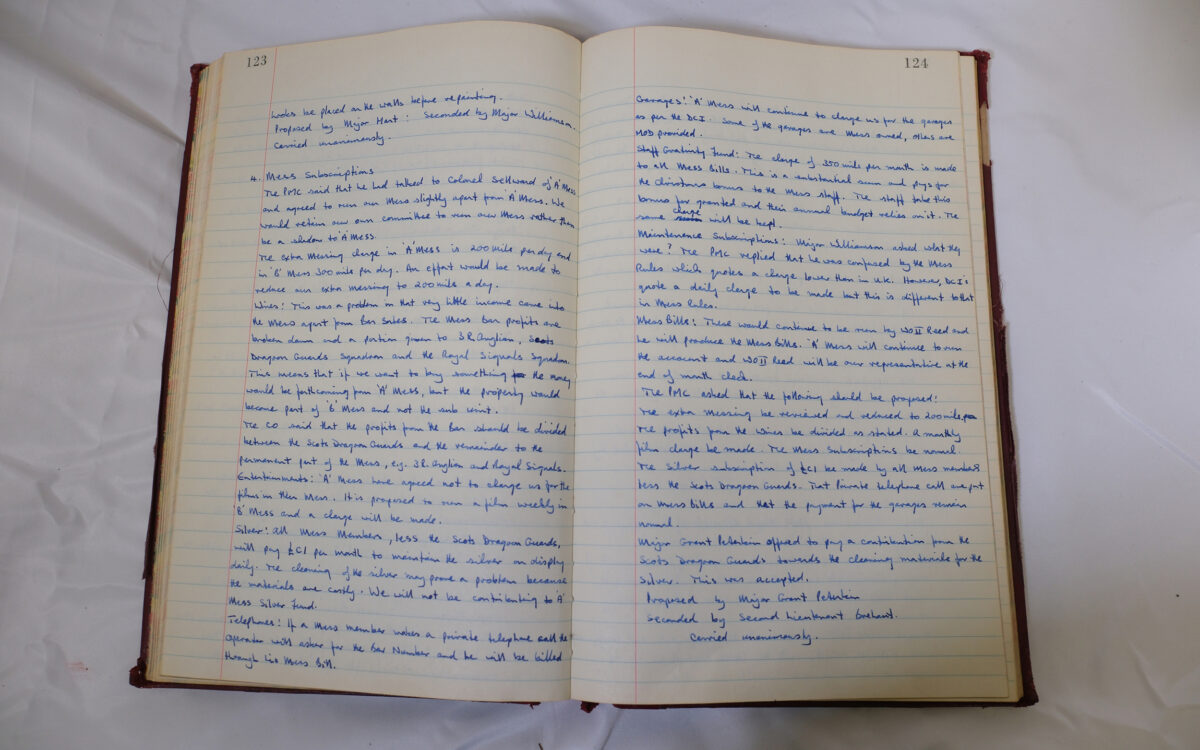 123
works be placed on the walls before repainting.
Proposed by Major Hart: Seconded by Major Williamson.
Carried unanimously.
4. Mess Subscriptions
The PMC said that he had talked to Colonel Sellward of 'A' Mess
and agreed to run our Mess slightly apart from 'A' Mess. We
would retain our own committee to run our Mess rather than
be a shadow to 'A' Mess.
The extra messing charge in 'A' Mess is 200 mils per day and
in 'B' Mess 300 mils per day. An effort would be made to
reduce our extra messing to 200 mils a day.
Wines: This was a problem in that very little income came into
the Mess apart from Bar Sales. The Mess Bar profits are
broken down and a portion given to 3 R. Anglian, Scots
Dragoon Guards Squadron and the Royal Signals Squadron.
This means that if we want to buy something the money
would be forthcoming from 'A' Mess, but the property would
become part of 'B' Mess and not the sub unit.
The CO said that the profits from the Bar should be divided
between the Scots Dragoon Guards and the remainder to the
permanent part of the Mess, eg. 3 R. Anglian and Royal Signals.
Entertainments: 'A' Mess have agreed not to charge us for the
films in their Mess. It is proposed to run a film weekly in
'B' Mess and a charge will be made.
Silver: All Mess Members, less the Scots Dragoon Guards,
will pay £C1 per month to maintain the silver on display
daily. The cleaning of the silver may prove a problem because
the materials are costly. We will not be contributing to 'A'
Mess Silver Fund.
Telephones: If a Mess member makes a private telephone call the
operator will asked for the Bar Number and he will be billed
through his Mess Bill.
124
Garages: 'A' Mess will continue to charge us for the garages
as per the DCI. Some of the garages are Mess owned, others are
MOD provided.
Staff Gratuity Fund: The charge of 350 mils per month is made
to all Mess Bills. This is a substantial sum and pays for
the Christmas bonus to the Mess staff. The staff take this
bonus for granted and their annual budget relies on it. The
same charge will be kept.
Maintenance Subscriptions: Major Williamson asked what they
were? The PMC replied that he was confused by the Mess
Rules which quotes a charge lower than in U.K. However, DCI's
quote a daily charge to be made but this is different to that
in Mess Rules.
Mess Bills: These would continue to be run by WO II Reed and
he will produce the Mess Bills. 'A' Mess will continue to run
the account and WO II Reed will be our representative at the
end of month check.
The PMC asked that the following should be proposed:
The extra messing be reviewed and reduced to 200 mils.
The profits from the Wines be divided as stated. A monthly
film charge be made. The Mess Subscriptions be normal.
The Silver subscription of £C1 be made by all Mess members
less the Scots Dragoon Guards. That Private telephone call are put
on Mess Bills and that the payment for the garages remain
normal.
Major Grant Peterkin offered to pay a contribution from the
Scots Dragoon Guards towards the cleaning materials for the
silver. This was accepted.
Proposed by Major Grant Peterkin
Seconded by Second Lieutenant
Carried unanimously.